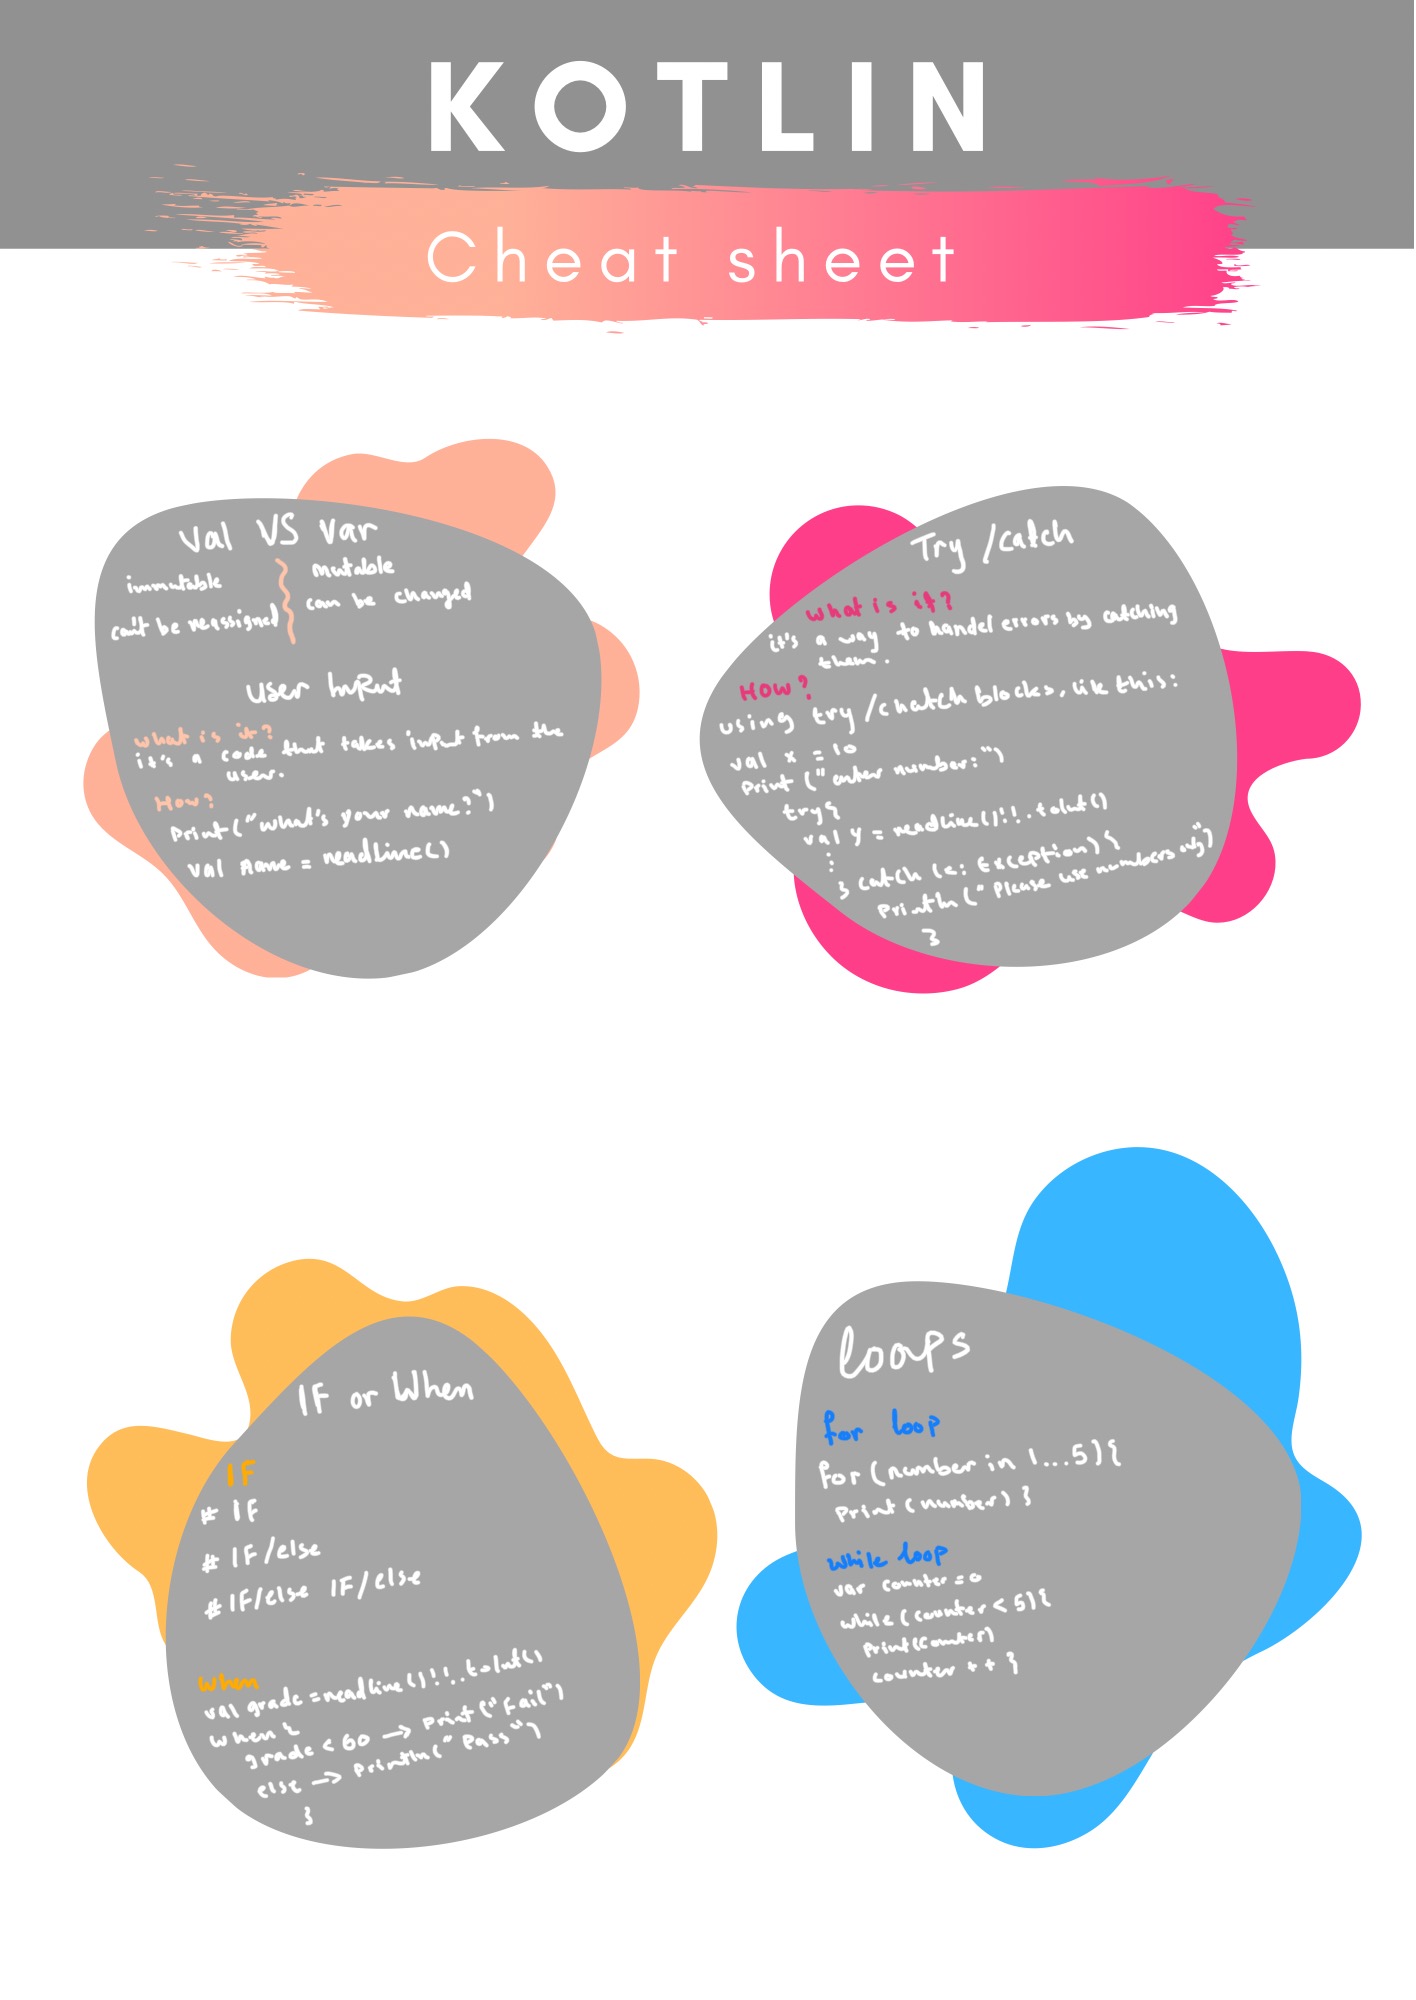 KOTLIN
Cheat sheet
Val VS Var
immutable
can't be reassigned
mutable
can be changed
User Input
what is it?
it's a code that takes input from the
user.
How?
Print("what's your name?")
val name = readline()
Try /catch
what is it?
it's a way to handel errors by catching
them.
How?
using try /chatch blocks, like this:
val x = 10
Print ("enter number:")
try{
val y = readline()!!.toInt()
:
} catch (e: Exception) {
Println ("Please use numbers only")
}
IF or When
IF
# IF
# IF/else
# IF/else IF/else
When
val grade = readline()!!..toInt()
when {
grade < 60 -> Print ("Fail")
else -> Println("Pass")
}
loops
for loop
for (number in 1...5){
Print (number) }
While loop
var counter = 0
while (counter < 5){
Print(counter)
counter ++ }